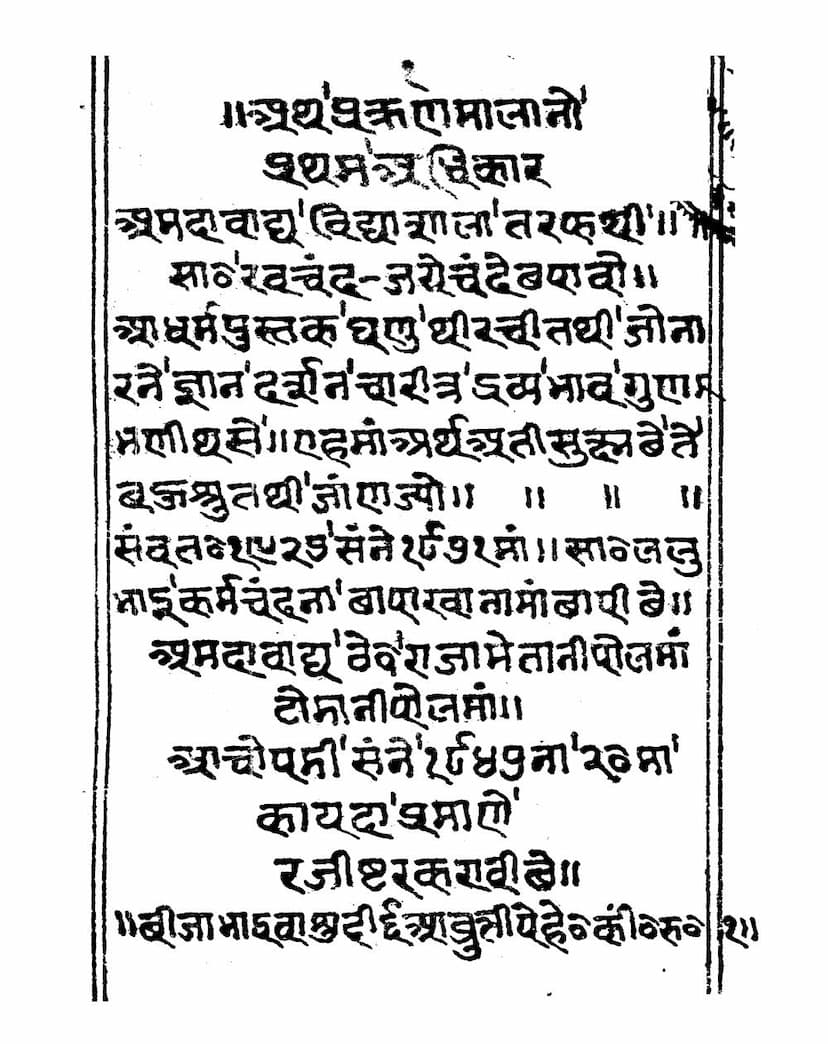 ॥अथ प्रक्रणमालानो
प्रथम अधिकार
अमदावाद्य विद्याशाला तरफथी॥
सा० रवचंद-जयेचंदे छपावी॥
आ धर्म पुस्तक घणु थी रची तथी जोना
रने ज्ञान दर्शन चारीत्र द्रव्य भाव गुण
मणी थसे॥ एहमां अर्थ अती सुक्ष्म छे ते
बऊश्रुतथी जांणज्यो॥ ॥ ॥ ॥
संवत० १९२७ संने १८७१मां॥ सा० लल्लु
भाइ कर्मचंदना छापाखानामां छापी छे॥
अमदावाद्य ठे० राजामेतानी पोलमां
टोमानी पोलमां॥
आ चोपमी संने १८४७ना २०मा
कायदा प्रमाणे
रजीष्टर करावी छे॥
॥बीजा भाइवा शुदी